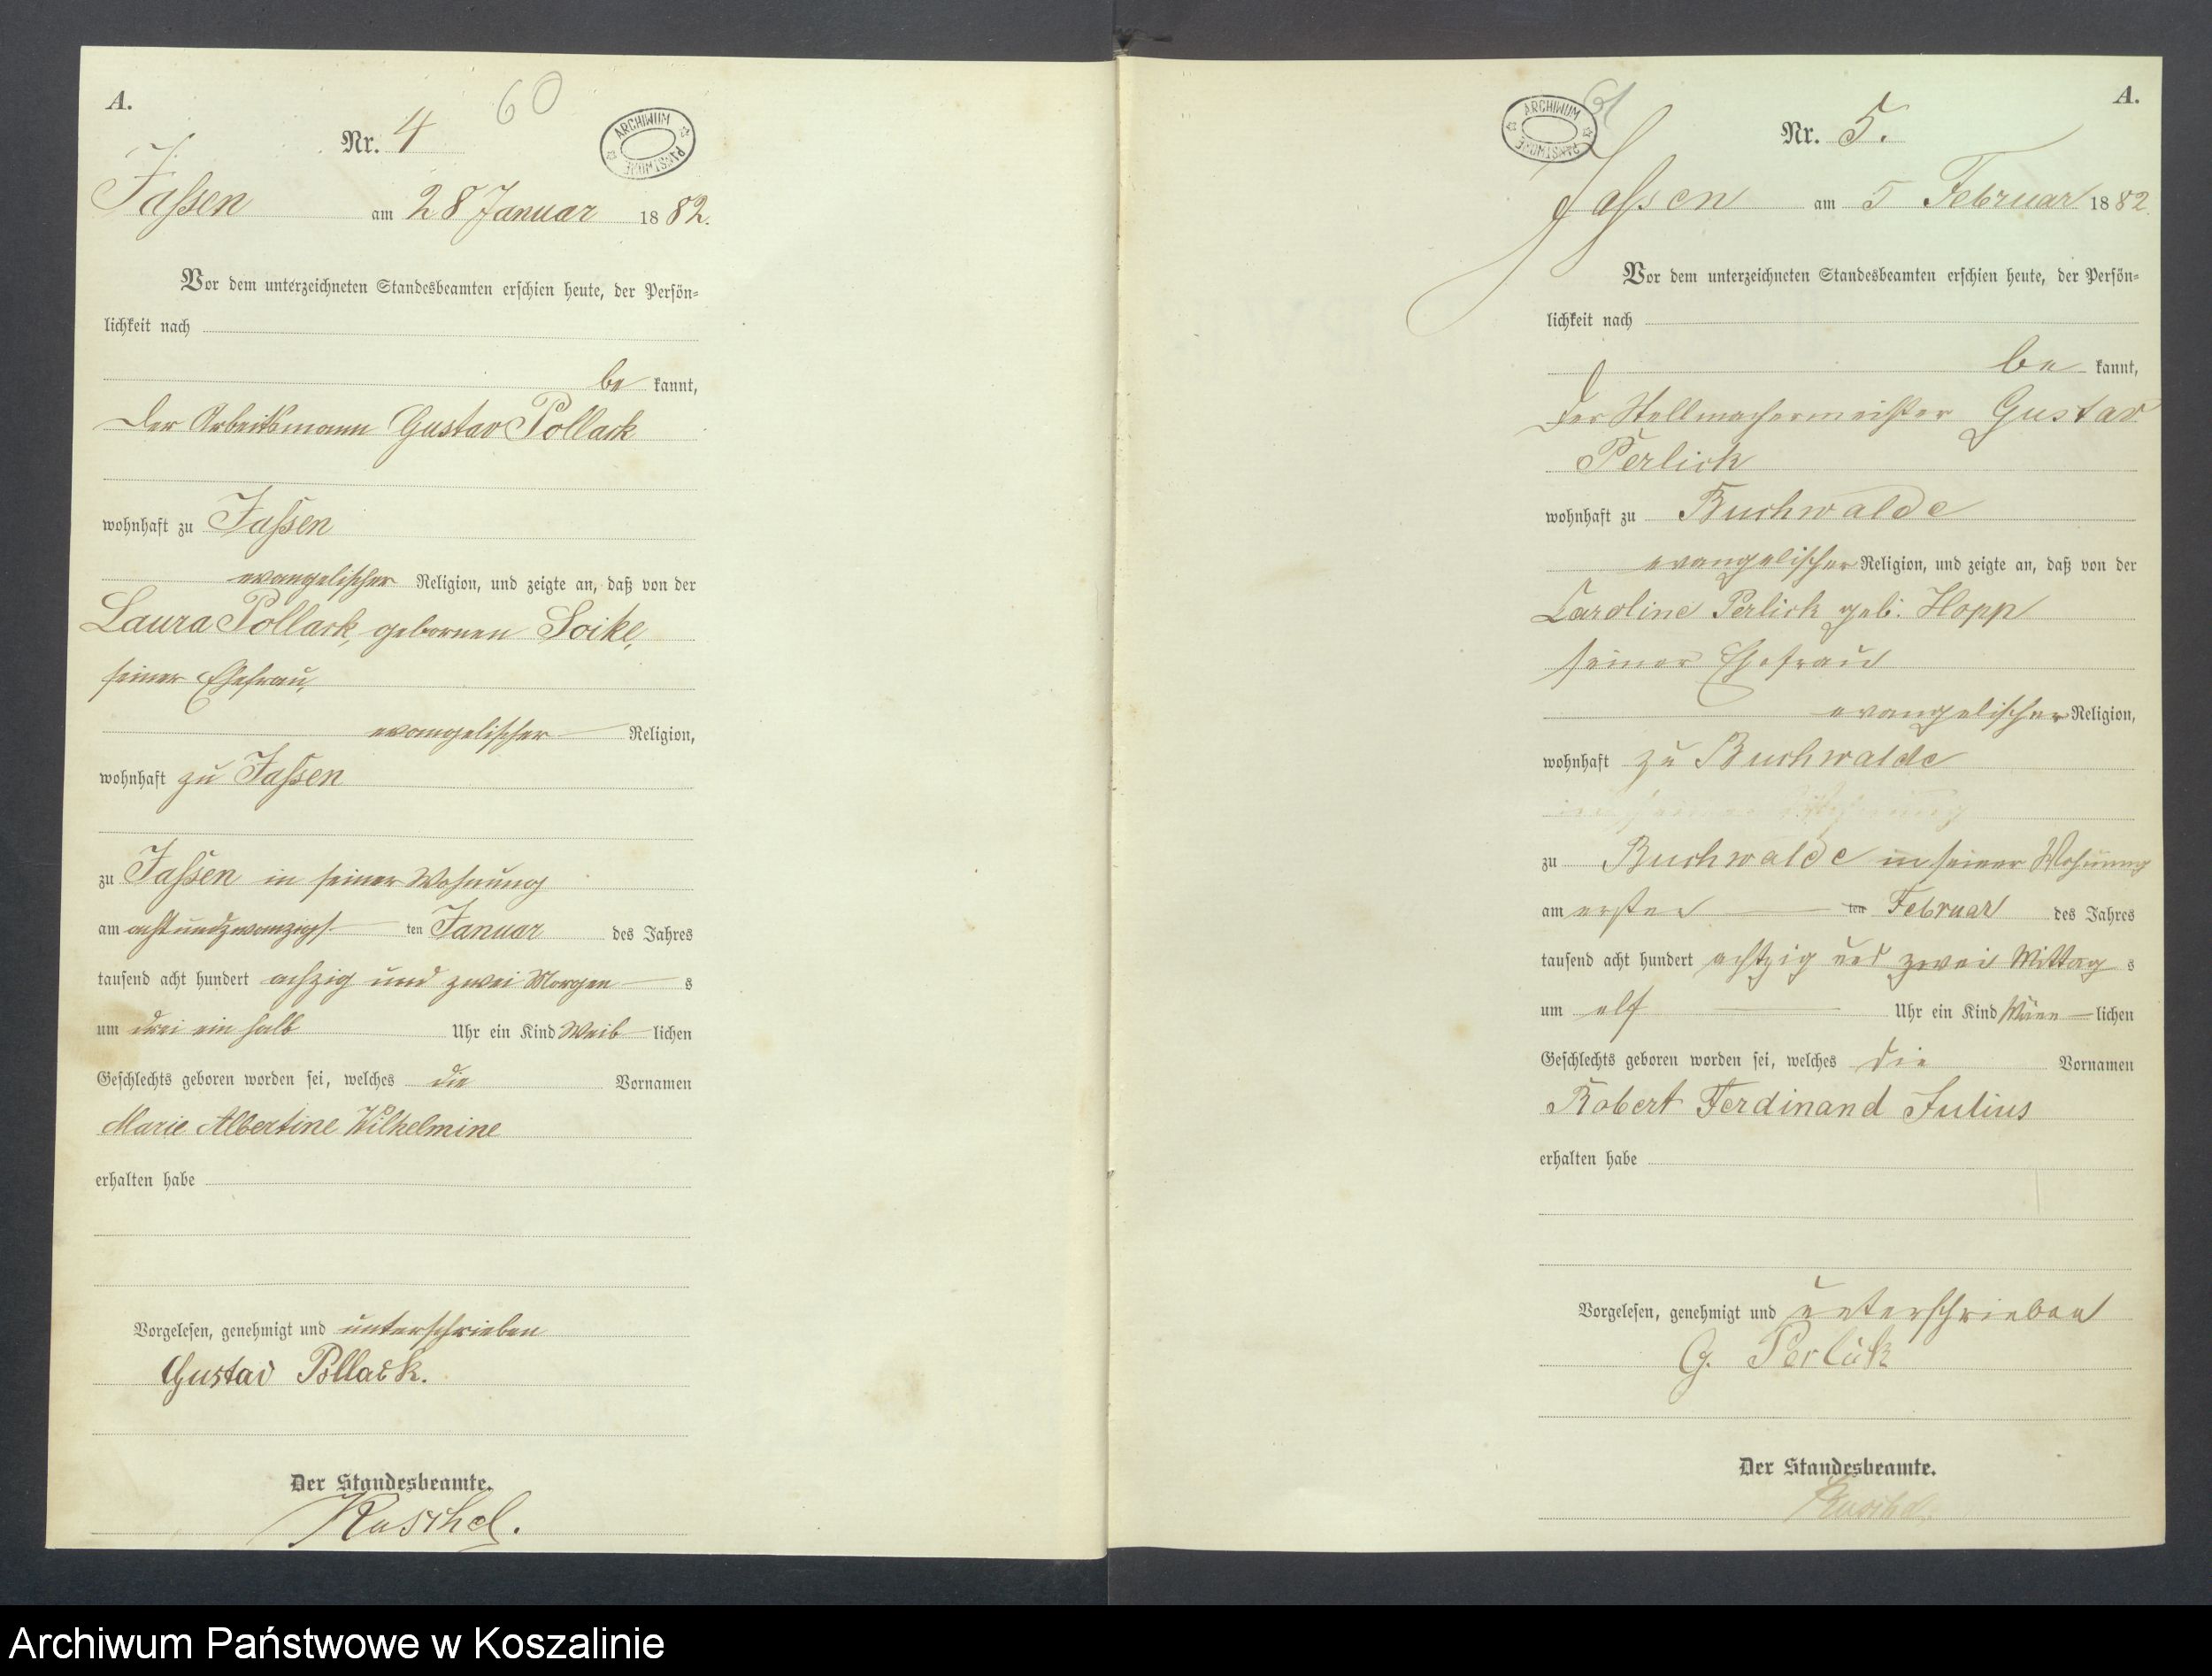 A.
60
Nr. 4
ARCHIWUM PAŃSTWOWE
Jassen am 28 Januar 1882.
Vor dem unterzeichneten Standesbeamten erschien heute, der Persön-
lichkeit nach
be kannt,
der Arbeitsmann Gustav Pollack
wohnhaft zu Jassen
evangelischer Religion, und zeigte an, daß von der
Laura Pollack, gebornen Soike,
seiner Ehefrau,
evangelischer Religion,
wohnhaft zu Jassen
zu Jassen in seiner Wohnung
am achtundzwanzigs ten Januar des Jahres
tausend acht hundert achzig und zwei Morgen s
um drei ein halb Uhr ein Kind Weib lichen
Geschlechts geboren worden sei, welches die Vornamen
Marie Albertine Wilhelmine
erhalten habe
Vorgelesen, genehmigt und unterschrieben
Gustav Pollack.
Der Standesbeamte.
Kuschel.
61
A.
ARCHIWUM PAŃSTWOWE
Nr. 5.
Jassen am 5 Februar 1882.
Vor dem unterzeichneten Standesbeamten erschien heute, der Persön-
lichkeit nach
be kannt,
der Stellmachermeister Gustav
Perlick
wohnhaft zu Buchwalde
evangelischer Religion, und zeigte an, daß von der
Caroline Perlick geb. Hopp
seiner Ehefrau
evangelischer Religion,
wohnhaft zu Buchwalde
in seiner Wohnung
zu Buchwalde in seiner Wohnung
am ersten ten Februar des Jahres
tausend acht hundert achtzig und zwei Mittag s
um elf Uhr ein Kind Männ lichen
Geschlechts geboren worden sei, welches die Vornamen
Robert Ferdinand Julius
erhalten habe
Vorgelesen, genehmigt und unterschrieben
G. Perlick
Der Standesbeamte.
Kuschel.
Archiwum Państwowe w Koszalinie